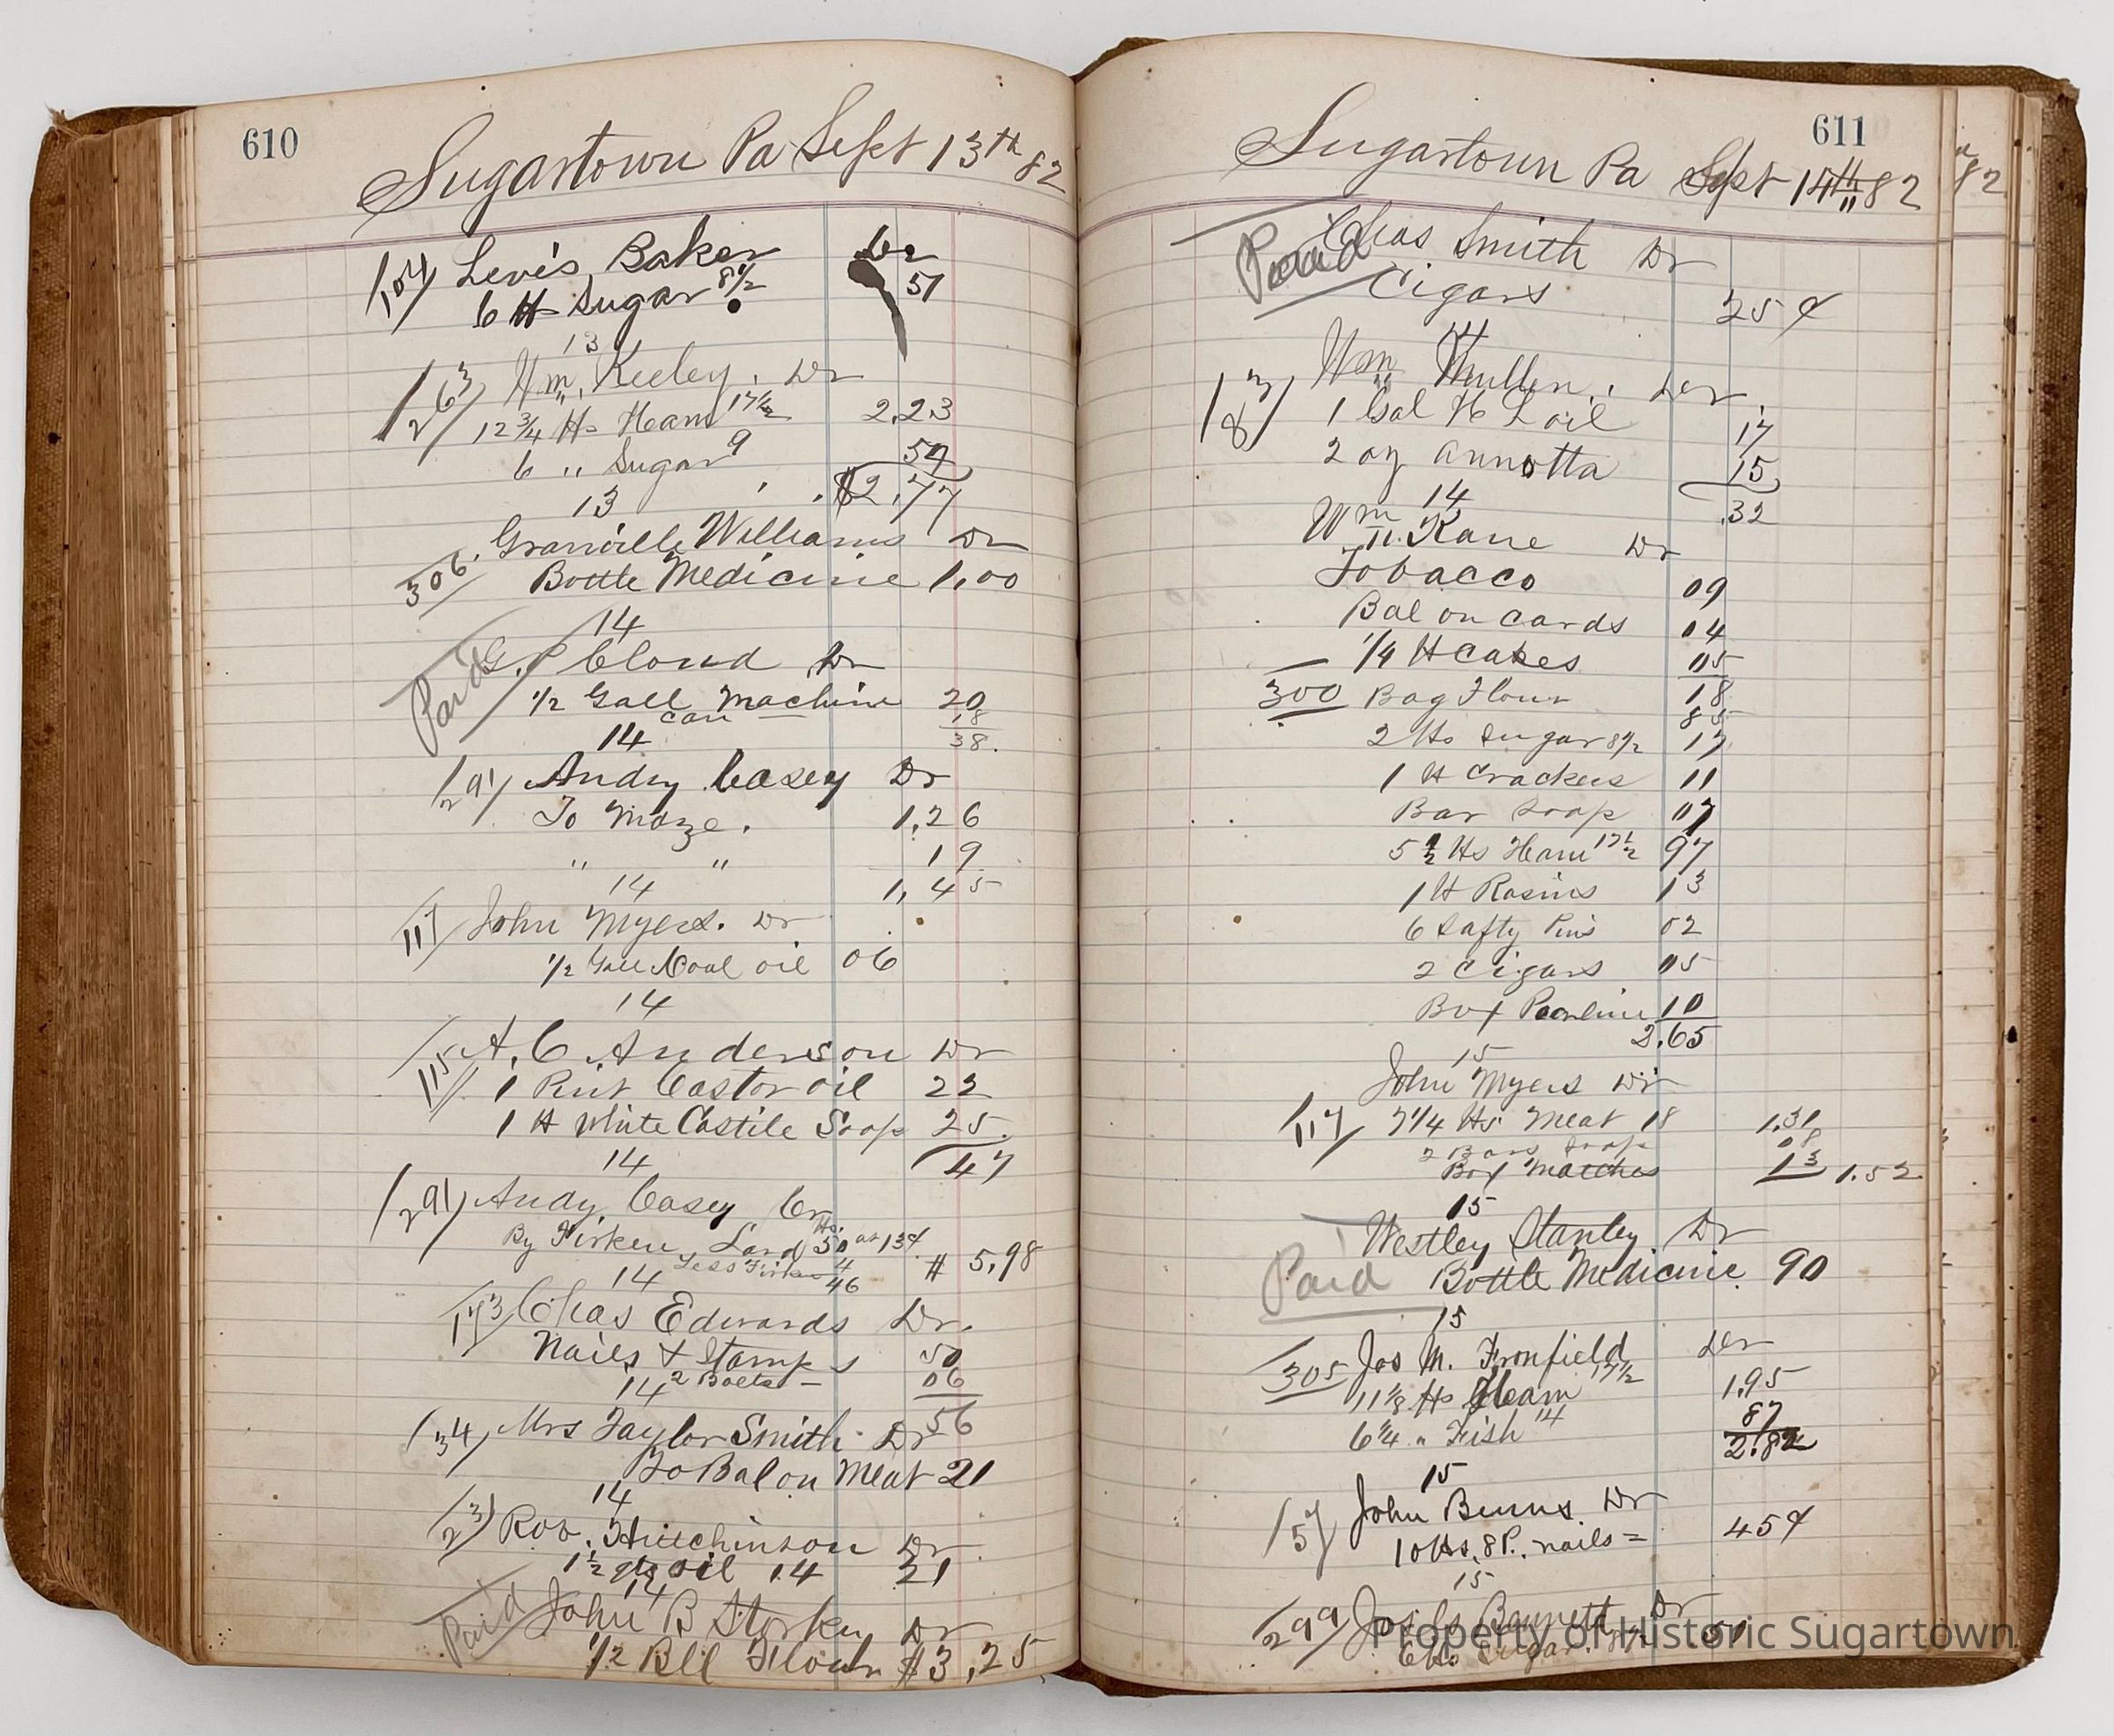 610
Sugartown Pa Sept 13th 82
104 Levis Baker Dr
6 ℔ Sugar 8 1/2 51
13
263 Wm Keeley. Dr
12 3/4 ℔ Ham 17 1/2 2.23
6 " Sugar 9 54
$2.77
13
306 Granville Williams Dr
Bottle Medicine 1,00
14
Paid G. P Cloud Dr
1/2 Gall Machine 20
can 18
38.
14
291 Andy Casey Dr
To Maze. 1,26
" " 19
1,45
14
117 John Myers. Dr
1/2 Gall Coal oil 06
14
115 A, C Anderson Dr
1 Pint Castor oil 22
1 ℔ White Castile Soap 25
47
14
291 Andy Casey Cr
By Firken Lard 50 ℔s. at 13¢
Less Firken 4 $ 5,98
46
14
173 Chas Edwards Dr.
Nails & Stamps 50
2 Bolts - 06
56
14
34 Mrs Taylor Smith Dr
To Bal on Meat 21
14
23 Rob. Hutchinson Dr
1 1/2 gts oil 14 21
14
Paid John B Dr
1/2 Bll Flour $3,25
611
Sugartown Pa Sept 14th 82
Paid Chas Smith Dr
Cigars 25¢
14
138 Wm Mullin. Dr
1 Gal H L oil 17
2 oz annotta 15
.32
14
Wm Kane Dr
Tobacco 09
Bal on Cards 04
1/4 ℔ Cakes 05
18
300 Bag Flour 85
2 ℔s Sugar 8 1/2 17
1 ℔ Crackers 11
Bar Soap 07
5 1/2 ℔s Ham 17 1/2 97
1 ℔ Rasins 13
6 Safty Pins 02
2 Cigars 05
Box Pearline 10
2.65
15
John Myers Dr
117 7 1/4 ℔s Meat 18 1.31
2 Bars Soap 08
Box Matches 13 1.52
15
Westley Stanley Dr
Paid Bottle Medicine 90
15
305 Jos M. Fronfield Dr
11 1/8 ℔s Ham 17 1/2 1.95
6 1/4 " Fish 14 87
2.82
15
57 John Burns Dr
10 ℔s, 8 P. nails = 45¢
15
299 Jos Bennett Dr
6 ℔s Sugar. 8 1/2 51
82
Property of Historic Sugartown